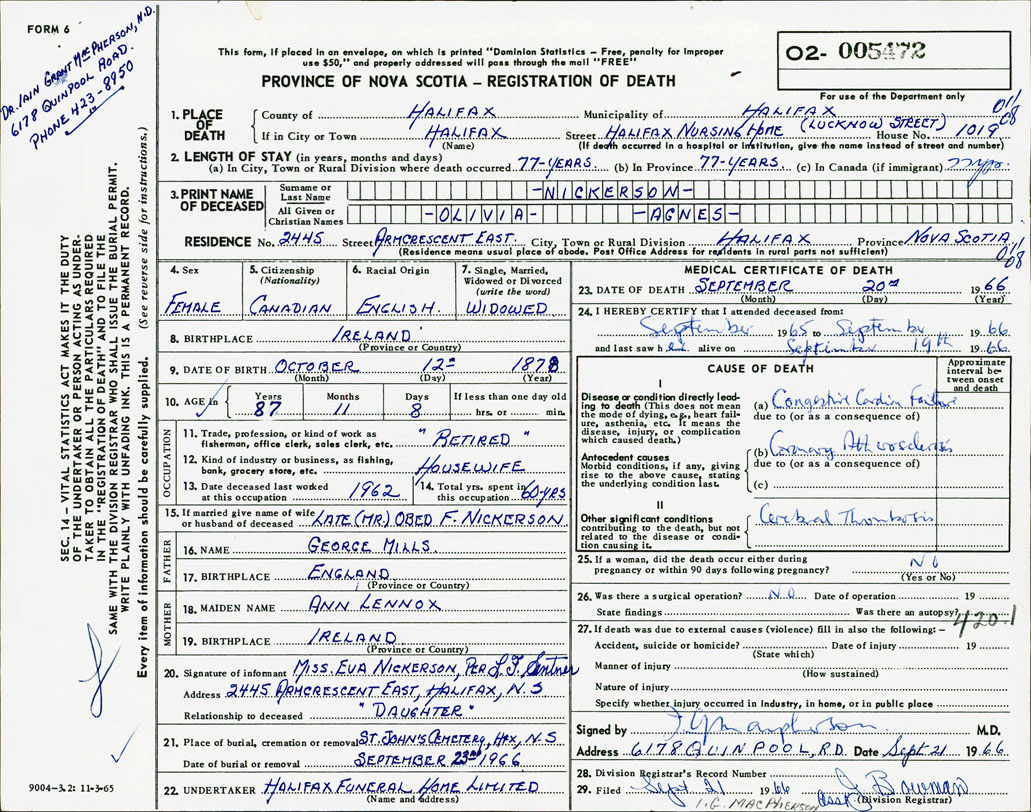 FORM 6
DR. IAIN GRANT MACPHERSON, M.D.
6178 QUINPOOL ROAD.
PHONE 423-8950
This form, if placed in an envelope, on which is printed "Dominion Statistics – Free, penalty for improper
use $50," and properly addressed will pass through the mail "FREE"
O2- 005472
For use of the Department only
PROVINCE OF NOVA SCOTIA – REGISTRATION OF DEATH
1. PLACE OF DEATH
County of HALIFAX Municipality of HALIFAX
If in City or Town HALIFAX Street HALIFAX NURSING HOME (LUCKNOW STREET) House No. 1019
(Name) (If death occurred in a hospital or institution, give the name instead of street and number)
2. LENGTH OF STAY (in years, months and days)
(a) In City, Town or Rural Division where death occurred 77-YEARS. (b) In Province 77-YEARS. (c) In Canada (if immigrant) 77 yrs.
3. PRINT NAME OF DECEASED
Surname or Last Name -NICKERSON-
All Given or Christian Names -OLIVIA- -AGNES-
RESIDENCE No. 2445 Street ARMCRESCENT EAST. City, Town or Rural Division HALIFAX Province NOVA SCOTIA
(Residence means usual place of abode. Post Office Address for residents in rural parts not sufficient)
011
08
011
08
4. Sex FEMALE
5. Citizenship (Nationality) CANADIAN
6. Racial Origin ENGLISH.
7. Single, Married, Widowed or Divorced (write the word) WIDOWED
8. BIRTHPLACE IRELAND
(Province or Country)
9. DATE OF BIRTH OCTOBER 12 1878
(Month) (Day) (Year)
10. AGE in Years 87 Months 11 Days 8 If less than one day old
hrs. or min.
OCCUPATION
11. Trade, profession, or kind of work as fisherman, office clerk, sales clerk, etc. "RETIRED"
12. Kind of industry or business, as fishing, bank, grocery store, etc. HOUSEWIFE
13. Date deceased last worked at this occupation 1962
14. Total yrs. spent in this occupation 60 YRS
15. If married give name of wife or husband of deceased LATE (MR.) OBED F. NICKERSON
FATHER
16. NAME GEORGE MILLS.
17. BIRTHPLACE ENGLAND
(Province or Country)
MOTHER
18. MAIDEN NAME ANN LENNOX
19. BIRTHPLACE IRELAND
(Province or Country)
20. Signature of informant MISS. EVA NICKERSON, PER
Address 2445 ARMCRESCENT EAST, HALIFAX, N.S
Relationship to deceased "DAUGHTER"
21. Place of burial, cremation or removal ST. JOHN'S CEMETERY, HFX, N.S
Date of burial or removal SEPTEMBER 23RD 1966
22. UNDERTAKER HALIFAX FUNERAL HOME LIMITED
(Name and address)
MEDICAL CERTIFICATE OF DEATH
23. DATE OF DEATH SEPTEMBER 20TH 1966
(Month) (Day) (Year)
24. I HEREBY CERTIFY that I attended deceased from:
September 1965 to September 1966
and last saw her alive on September 19th 1966
CAUSE OF DEATH
Approximate interval between onset and death
I
Disease or condition directly leading to death (This does not mean the mode of dying, e.g., heart failure, asthenia, etc. It means the disease, injury, or complication which caused death.)
(a) Congestive Cardiac Failure
due to (or as a consequence of)
Antecedent causes
Morbid conditions, if any, giving rise to the above cause, stating the underlying condition last.
(b) Coronary Atherosclerosis
due to (or as a consequence of)
(c)
II
Other significant conditions contributing to the death, but not related to the disease or condition causing it.
Cerebral Thrombosis
25. If a woman, did the death occur either during pregnancy or within 90 days following pregnancy? NO
(Yes or No)
26. Was there a surgical operation? NO Date of operation 19
State findings Was there an autopsy?
420.1
27. If death was due to external causes (violence) fill in also the following: –
Accident, suicide or homicide? Date of injury 19
(State which)
Manner of injury
(How sustained)
Nature of injury
Specify whether injury occurred in Industry, in home, or in public place
Signed by M.D.
Address 6178 QUINPOOL, RD. Date Sept 21 1966
28. Division Registrar's Record Number
29. Filed Sept. 21 1966 asst J Bowman
(Division Registrar)
I. G. MACPHERSON
SEC. 14 – VITAL STATISTICS ACT MAKES IT THE DUTY
OF THE UNDERTAKER OR PERSON ACTING AS UNDER-
TAKER TO OBTAIN ALL THE PARTICULARS REQUIRED
IN THE "REGISTRATION OF DEATH" AND TO FILE THE
SAME WITH THE DIVISION REGISTRAR WHO SHALL ISSUE THE BURIAL PERMIT.
WRITE PLAINLY WITH UNFADING INK. THIS IS A PERMANENT RECORD.
Every item of information should be carefully supplied. (See reverse side for instructions.)
9004–3.2: 11-3-65